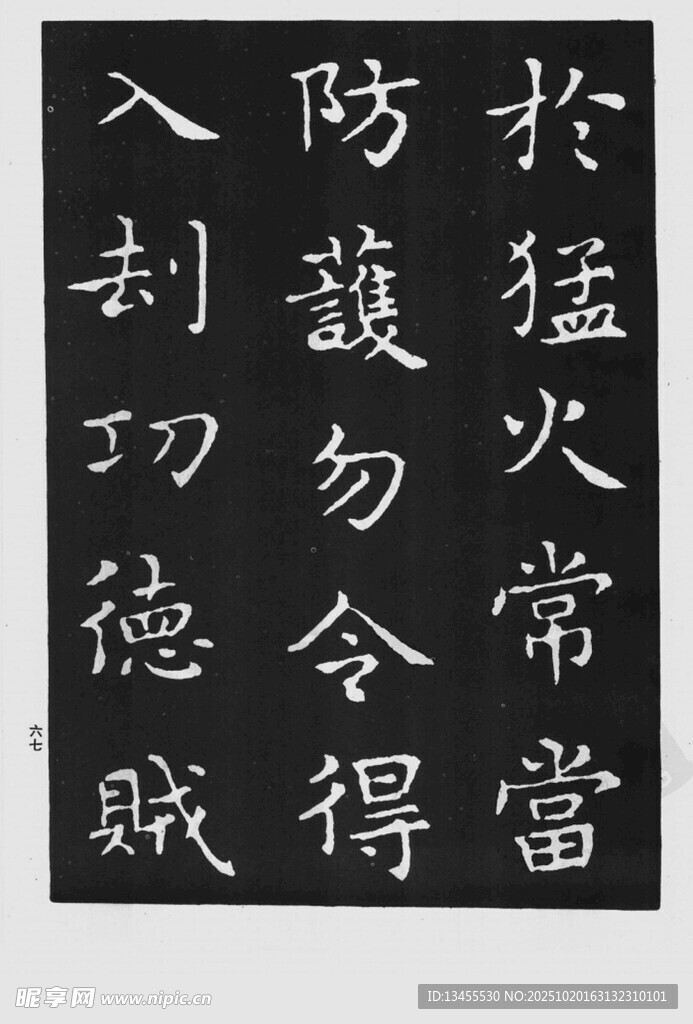 於猛火常當
防護勿令得
入刧功德賊
六七
昵享网 www.nipic.cn
ID:13455530 NO:20251020163132310101